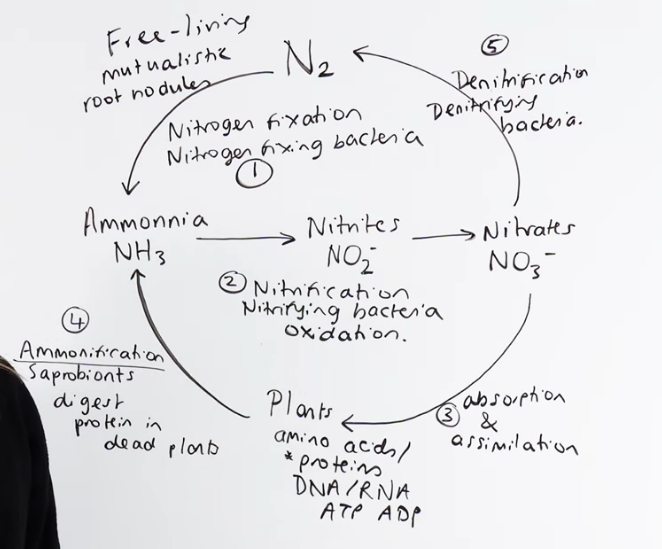 Free-living
mutualistic
root nodules
N₂
⑤
Denitrification
Denitrifying
bacteria.
Nitrogen fixation
Nitrogen fixing bacteria
①
Ammonnia
NH₃
Nitrites
NO₂⁻
Nitrates
NO₃⁻
② Nitrification
Nitrifying bacteria
oxidation.
④
Ammonification
Saprobionts
digest
protein in
dead plants
Plants
amino acids/
*proteins
DNA/RNA
ATP ADP
③ absorption
&
assimilation